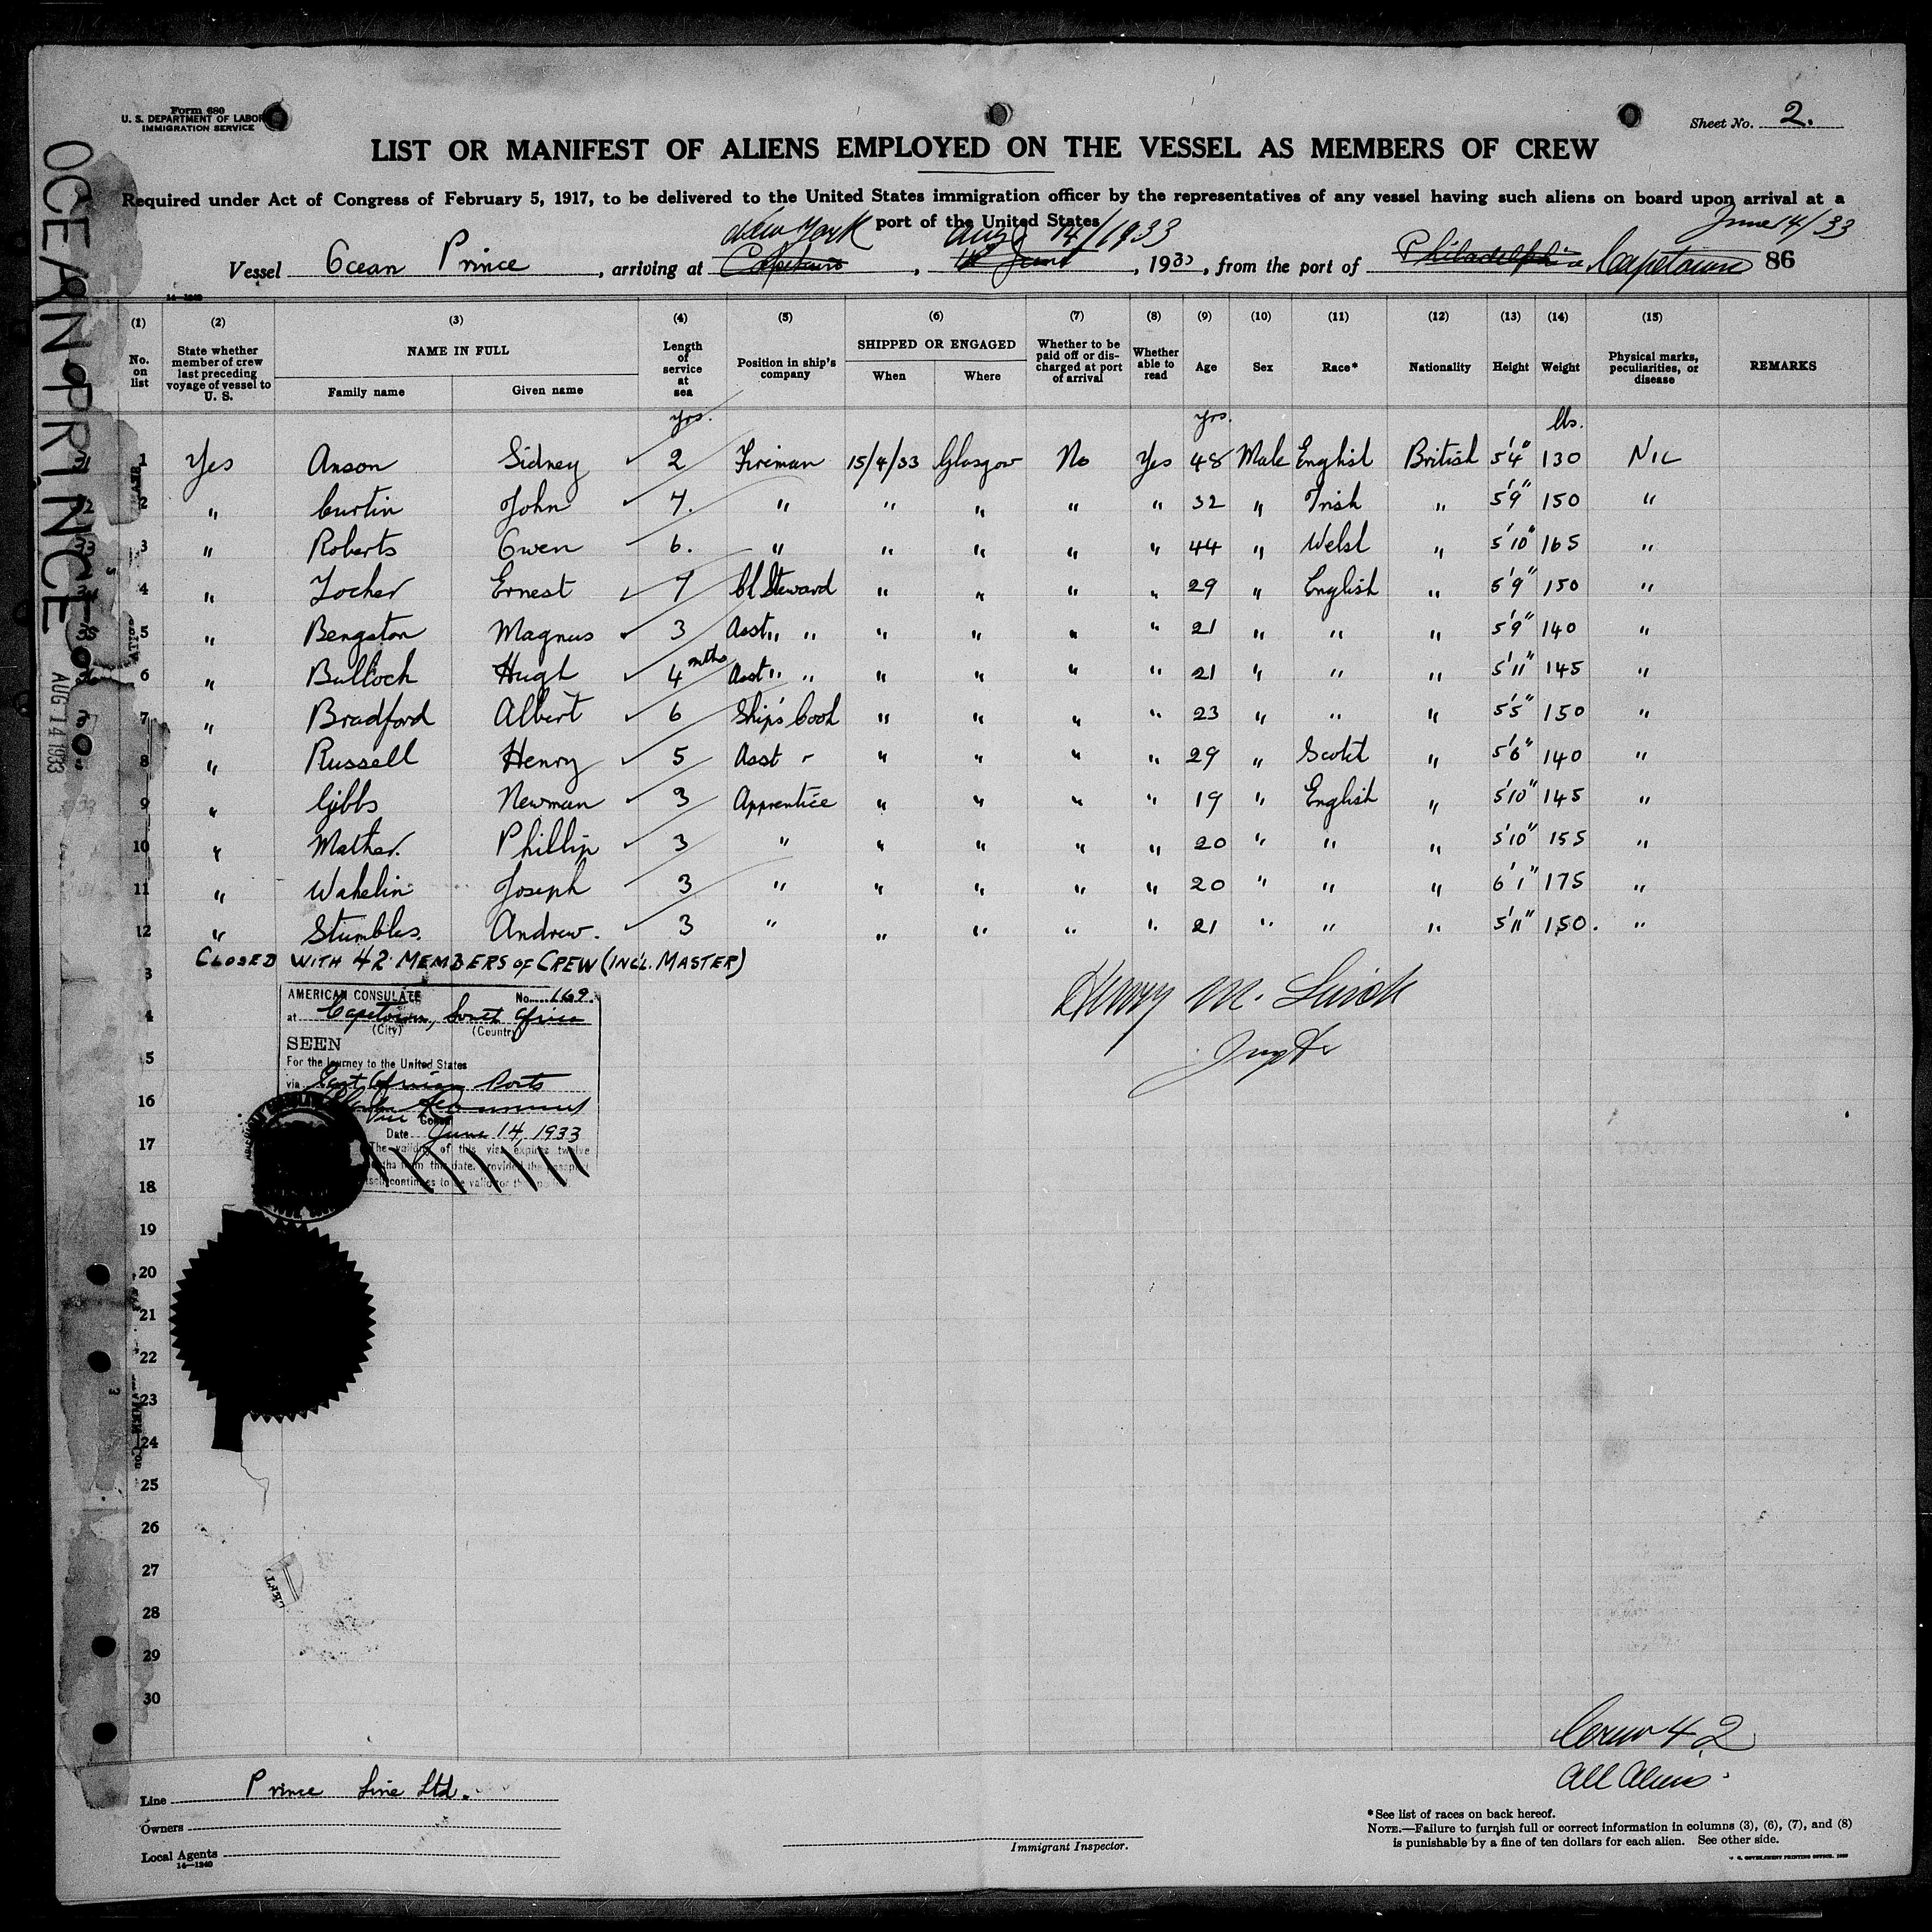 Form 680
U. S. DEPARTMENT OF LABOR
IMMIGRATION SERVICE
Sheet No. 2.
LIST OR MANIFEST OF ALIENS EMPLOYED ON THE VESSEL AS MEMBERS OF CREW
Required under Act of Congress of February 5, 1917, to be delivered to the United States immigration officer by the representatives of any vessel having such aliens on board upon arrival at a
port of the United States
New York Aug 14/1933 June 14/33
Vessel Ocean Prince, arriving at Capetown, June, 193, from the port of Philadelphia Capetown 86
OCEAN PRINCE
AUG 14 1933
14—1240
(1) (2) (3) (4) (5) (6) (7) (8) (9) (10) (11) (12) (13) (14) (15)
No. on list
State whether member of crew last preceding voyage of vessel to U. S.
NAME IN FULL
Family name
Given name
Length of service at sea
Position in ship's company
SHIPPED OR ENGAGED
When
Where
Whether to be paid off or discharged at port of arrival
Whether able to read
Age
Sex
Race*
Nationality
Height
Weight
Physical marks, peculiarities, or disease
REMARKS
yrs. yrs. lbs.
1 Yes Anson Sidney 2 Fireman 15/4/33 Glasgow No Yes 48 Male English British 5'4" 130 NIL
2 " Curtin John 7. " " " " " 32 " Irish " 5'9" 150 "
3 " Roberts Owen 6. " " " " " 44 " Welsh " 5'10" 165 "
4 " Locher Ernest 7 Ch Steward " " " " 29 " English " 5'9" 150 "
5 " Bengston Magnus 3 Asst " " " " " " 21 " " " 5'9" 140 "
6 " Bullock Hugh 4 mths Asst " " " " " " 21 " " " 5'11" 145 "
7 " Bradford Albert 6 Ship's Cook " " " " 23 " " " 5'5" 150 "
8 " Russell Henry 5 Asst " " " " " 29 " Scotch " 5'6" 140 "
9 " Gibbs Newman 3 Apprentice " " " " 19 " English " 5'10" 145 "
10 " Mather. Phillip 3 " " " " " 20 " " " 5'10" 155 "
11 " Wakelin Joseph 3 " " " " " 20 " " " 6'1" 175 "
12 " Stumbles. Andrew. 3 " " " " " 21 " " " 5'11" 150. "
CLOSED WITH 42 MEMBERS OF CREW (INCL. MASTER)
3
4
5
16
17
18
19
20
21
22
23
24
25
26
27
28
29
30
AMERICAN CONSULATE No. 169.
at Capetown, South Africa
(City) (Country)
SEEN
For the journey to the United States
via East African Ports
Vice Consul
Date June 14, 1933
The validity of this visa expires twelve
months from this date, provided the passport
itself continues to be valid for
Henry M.
Crew 42
All Aliens
Line Prince Line Ltd.
Owners
Local Agents
14—1240
Immigrant Inspector.
*See list of races on back hereof.
NOTE.—Failure to furnish full or correct information in columns (3), (6), (7), and (8)
is punishable by a fine of ten dollars for each alien. See other side.